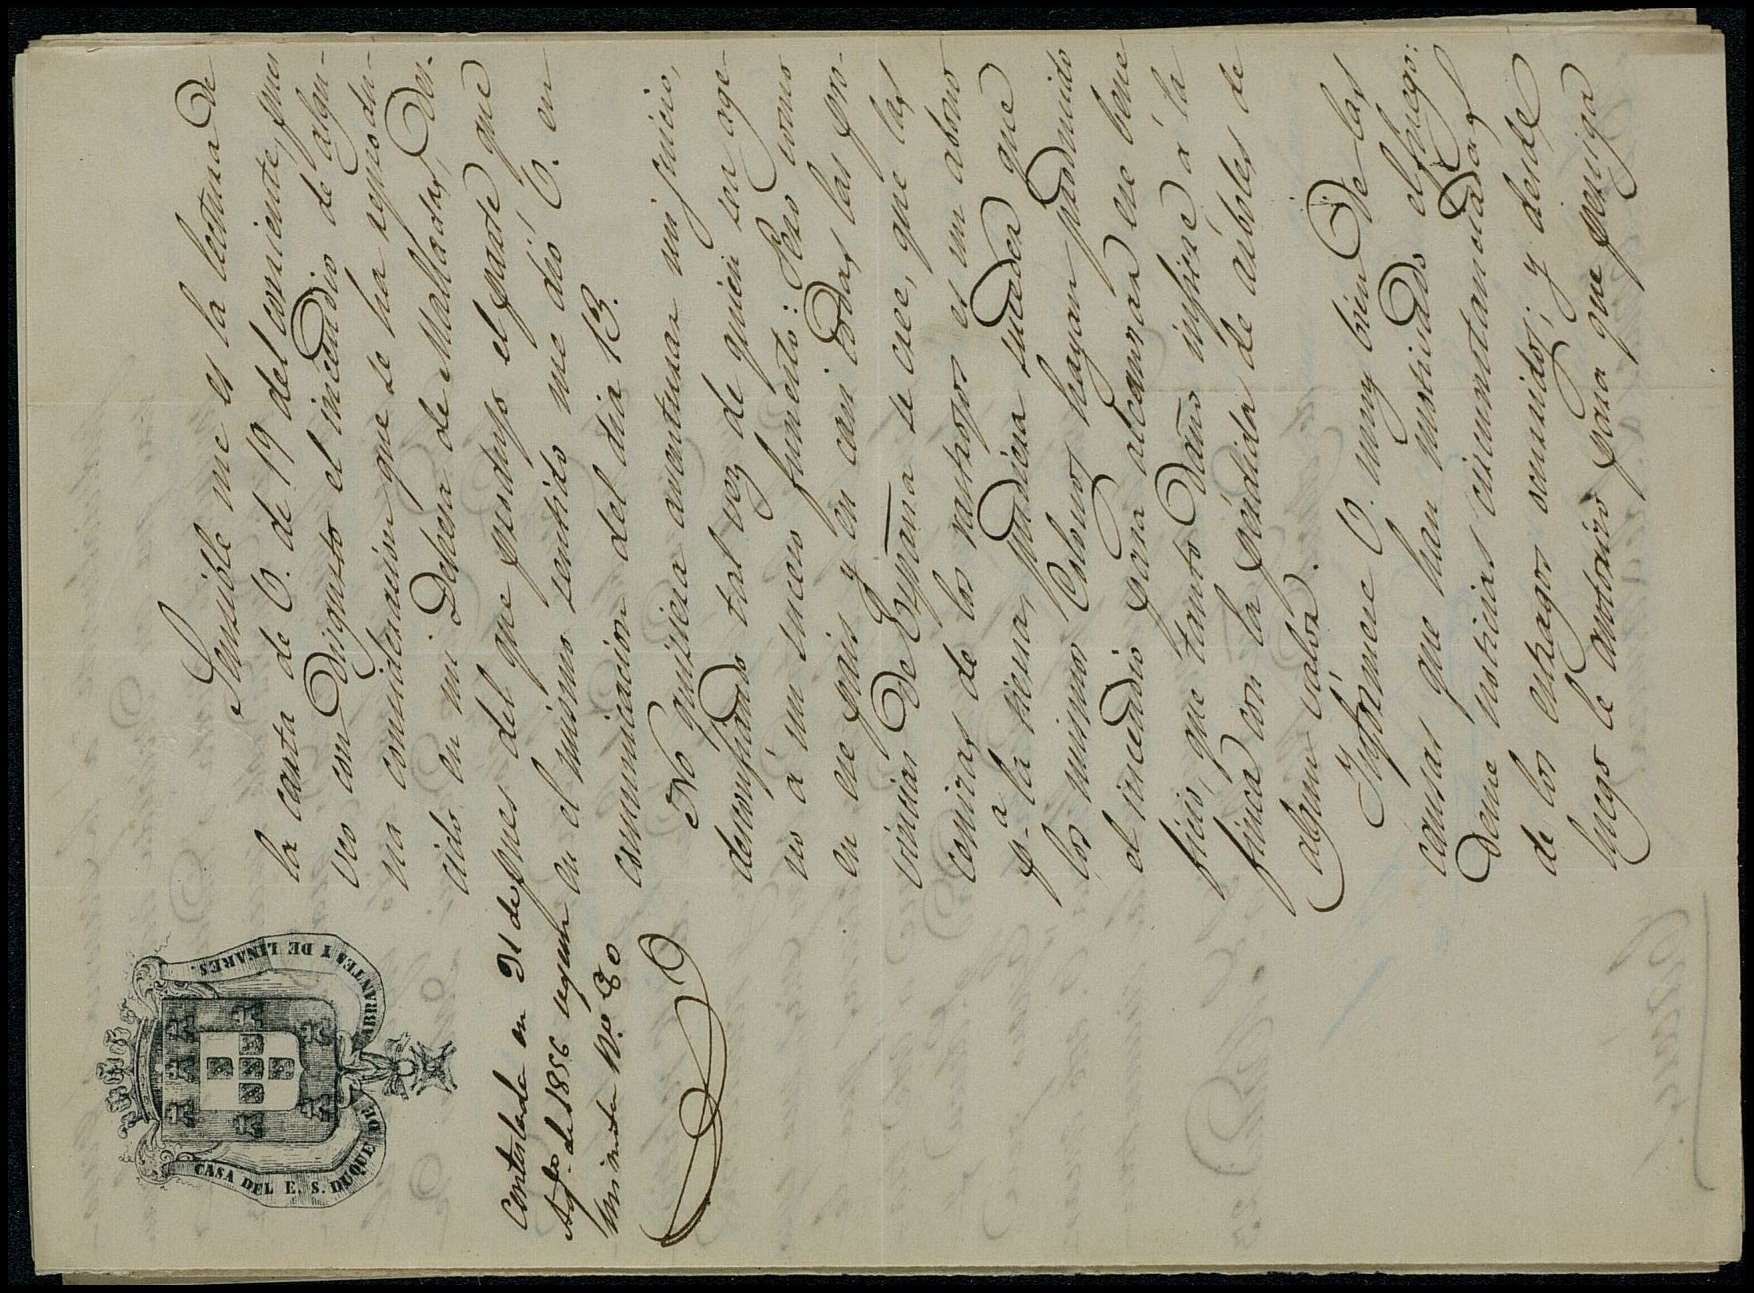 CASA DEL E. S. DUQUE DE ABRANTES Y DE LINARES.
Contestada en 31 de
Agto. de 1856 segun
minuta Nº 80
Sensible me es la lectura de
la carta de V. de 19 del corriente, pues
veo con disgusto el incendio de algu-
na consideracion que se ha reprodu-
cido en mi Dehesa de Malladas, des-
pues del que produjo el parte que
en el mismo sentido me dió V. en
comunicacion del dia 13.
No quisiera aventurar mi juicio,
desconfiando tal vez de quien sea age-
no á un suceso funesto: Pero como
en ese pais y en casi todas las pro-
vincias de España se cree, que las
cenizas de los rastrojos es un abono
pa. la tierra, pudiera suceder que
los mismos Colonos hayan promovido
el incendio para alcanzar ese bene-
ficio, que tanto daño infiere á la
finca con la pérdida de árboles de
algun valor.
Infórmese V. muy bien de las
causas que han motivado el fuego:
Deme noticias circunstanciadas
de los estragos ocurridos; y desde
luego le autorizo para que persiga